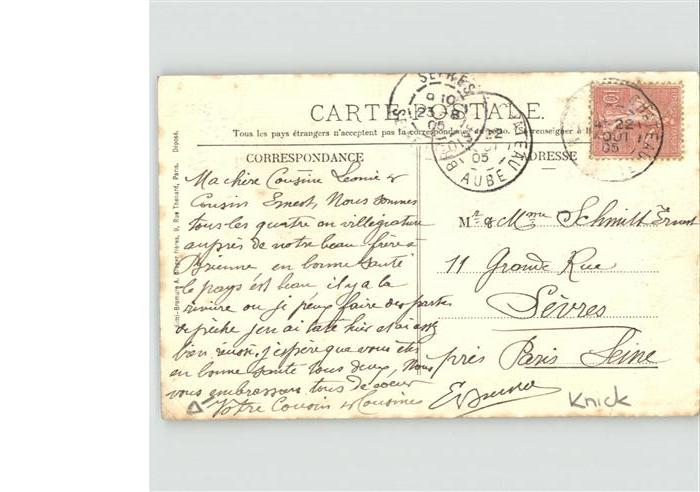 CARTE POSTALE.
Tous les pays étrangers n'acceptent pas la correspondance au recto. (Se renseigner à
CORRESPONDANCE
ADRESSE
Ma chère Cousine Léonie &
Cousin Ernest, Nous sommes
tous les quatre en villégiature
auprès de notre beau frère à
Brienne en bonne santé
le pays est beau il y a la
rivière ou je peux faire des parties
de pêche j'en ai taté hier et ai assez
bien réussi, j'espère que vous êtes
en bonne santé tous deux, Nous
vous embrassons tous de coeur
Votre Cousin & Cousines
Mr & Mme Schmitt Ernest
11 Grande Rue
Sèvres
près Paris Seine
Knick
SEVRES
9
23 8
05
BRIENNE-LE-CHATEAU
22
05
AUBE
CHATEAU
22
AOUT
05
10
Frères, 9, Rue Thénard, Paris. Déposé.